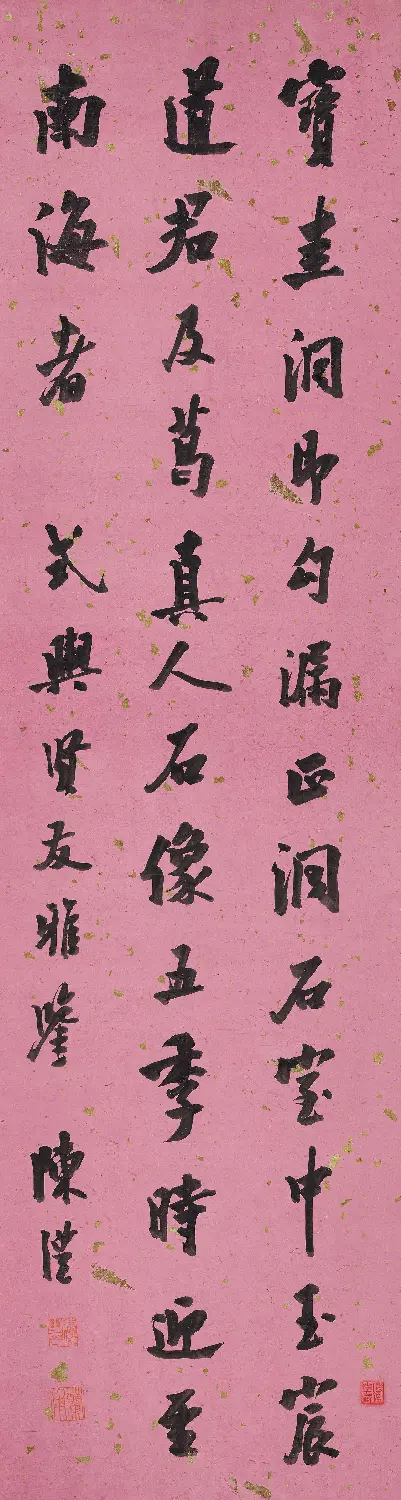 寶圭洞即勾漏正洞石室中玉宸
道君及葛真人石像五季時迎至
南海者　式輿賢友雅鑒　陳澧